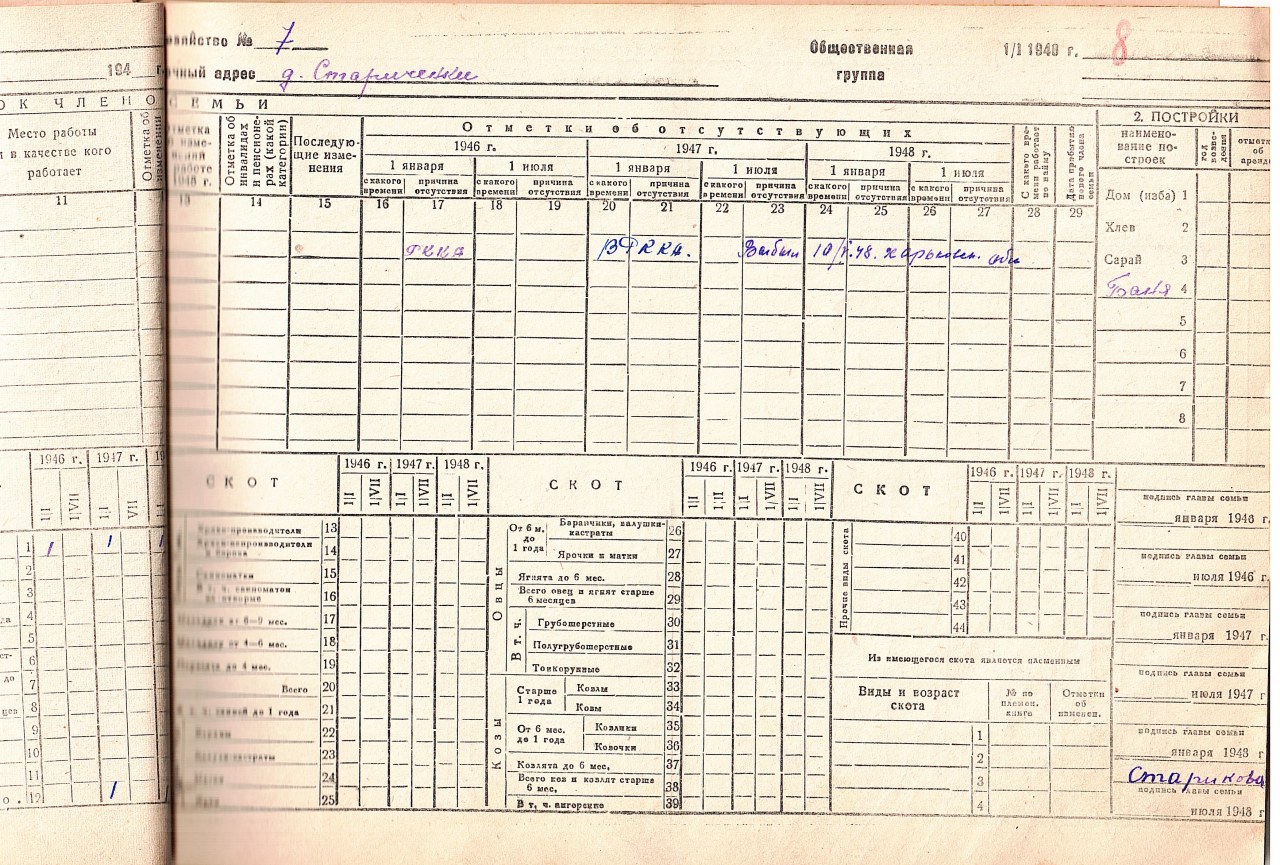 зяйство № 7
Общественная
группа
1/I 1949 г. 8
194 г.
чный адрес д. Стариченки
ОК ЧЛЕНО
СЕМЬИ
Место работы
и в качестве кого
работает
Отметка об изменении
Отметка об инвалидах и пенсионерах (какой категории)
Последую-
щие изме-
нения
Отметки об отсутствующих
1946 г. 1947 г. 1948 г.
1 января 1 июля 1 января 1 июля 1 января 1 июля
с какого времени причина отсутствия с какого времени причина отсутствия с какого времени причина отсутствия с какого времени причина отсутствия с какого времени причина отсутствия с какого времени причина отсутствия
С какого времени работает по найму
Дата прибытия нового члена семьи
2. ПОСТРОЙКИ
наимено-
вание по-
строек
год возведения
отметк
об
аренд
11 13 14 15 16 17 18 19 20 21 22 23 24 25 26 27 28 29
Дом (изба) 1
Хлев 2
РККА В РККА. Выбыл 10/I.48. Харьковск. обл
Сарай 3
Баня 4
5
6
7
8
1946 г. 1947 г. 19
1|I 1|VII 1|I VII
1 1 1 1
2
3
4
5
6
7
8
9
10
11
12 1
СКОТ 1946 г. 1947 г. 1948 г.
1|I 1|VII 1|I 1|VII 1|I 1|VII
13
14
15
16
17
18
до 4 мес. 19
Всего 20
21
22
23
24
25
СКОТ 1946 г. 1947 г. 1948 г.
1|I 1|II 1|I 1|VII 1|I 1|VII
Овцы
От 6 м.
до
1 года
Баранчики, валушки-
кастраты 26
Ярочки и матки 27
Ягнята до 6 мес. 28
Всего овец и ягнят старше
6 месяцев 29
В т. ч.
Грубошерстные 30
Полугрубошерстные 31
Тонкорунные 32
Козы
Старше
1 года
Козлы 33
Козы 34
От 6 мес.
до 1 года
Козлики 35
Козочки 36
Козлята до 6 мес. 37
Всего коз и козлят старше
6 мес. 38
В т. ч. ангорские 39
СКОТ 1946 г. 1947 г. 1948 г.
1|I 1|VII 1|I 1|VII 1|I 1|VII
Прочие виды скота
40
41
42
43
44
Из имеющегося скота является племенным
Виды и возраст
скота
№ по
племен.
книге
Отметки
об
изменен.
1
2
3
4
подпись главы семьи
января 1946 г.
подпись главы семьи
июля 1946 г.
подпись главы семьи
января 1947 г.
подпись главы семьи
июля 1947 г
подпись главы семьи
января 1948 г
Старикова
подпись главы семьи
июля 1948 г